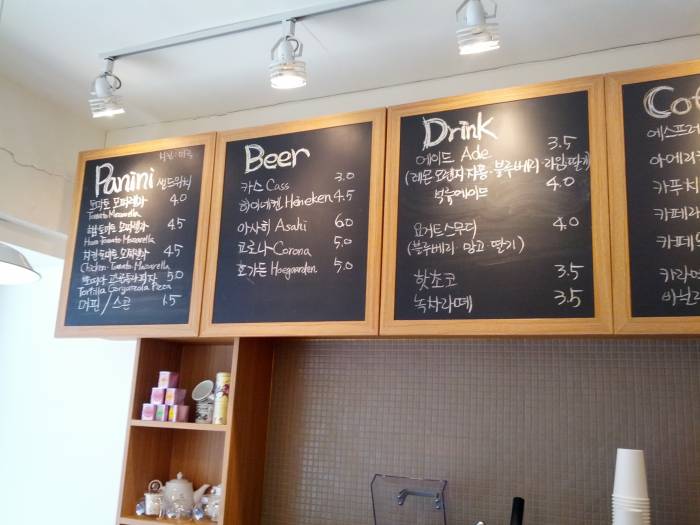 Panini 샌드위치
토마토 모짜렐라 4.0
Tomato Mozzarella
햄 토마토 모짜렐라 4.5
Ham Tomato Mozzarella
치킨 토마토 모짜렐라 4.5
Chicken Tomato Mozzarella
5.0
Tortilla Gorgonzola Pizza
머핀 / 스콘 1.5
Beer
카스 Cass 3.0
하이네켄 Heineken 4.5
아사히 Asahi 6.0
코로나 Corona 5.0
호가든 Hoegaarden 5.0
Drink
에이드 Ade 3.5
(레몬·오렌지·자몽·블루베리·라임·딸기)
벅스에이드 4.0
요거트스무디 4.0
(블루베리·망고·딸기)
핫초코 3.5
녹차라떼 3.5
Cof
에스프레
아메리
카푸치
카페라
카페모
카라
바닐라